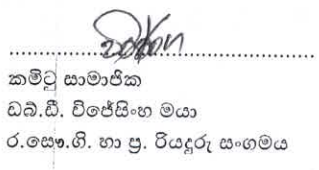 කමිටු සාමාජික
ඩබ්.ඩී. විජේසිංහ මයා
ර.සෞ.ගි. හා ප්‍ර. රියදුරු සංගමය